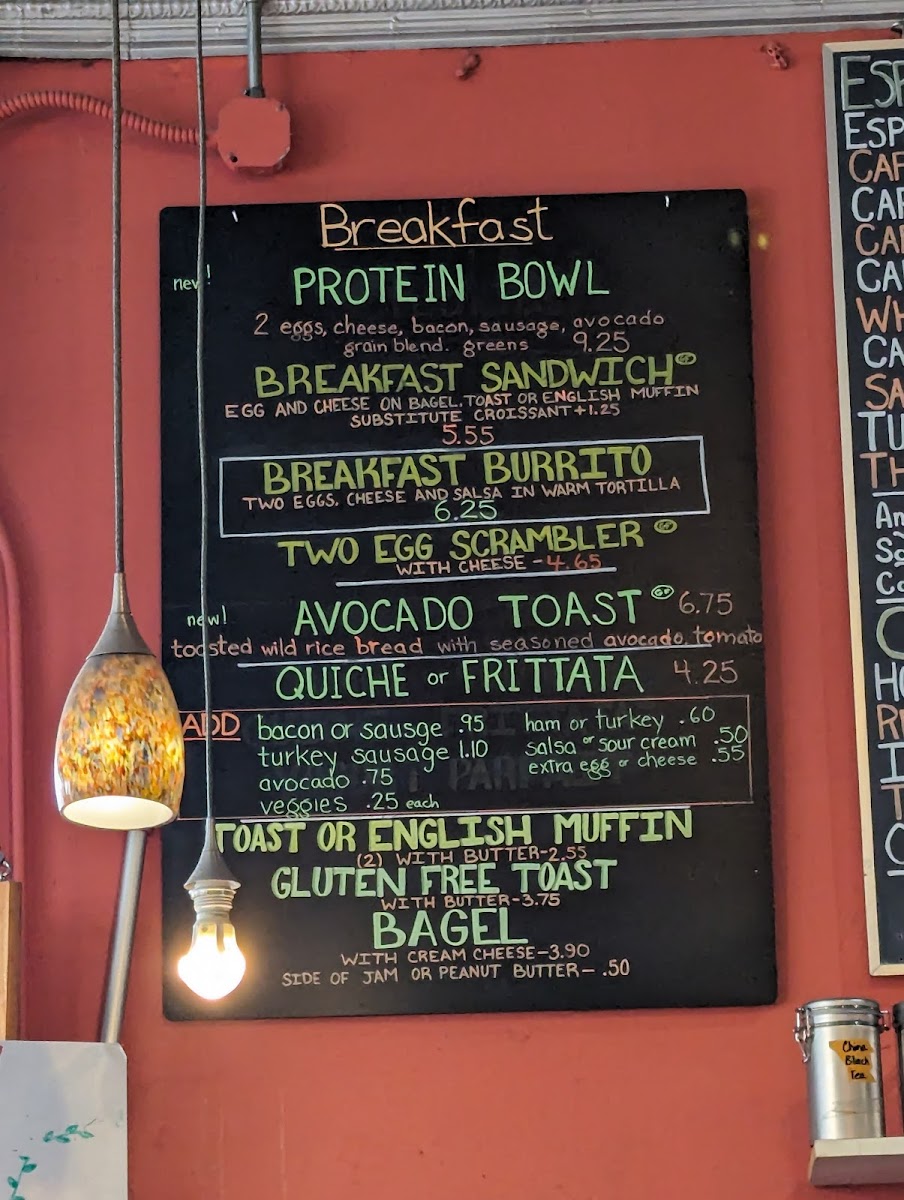 Breakfast
new!
PROTEIN BOWL
2 eggs, cheese, bacon, sausage, avocado
grain blend. greens 9.25
BREAKFAST SANDWICH GF
EGG AND CHEESE ON BAGEL, TOAST OR ENGLISH MUFFIN
SUBSTITUTE CROISSANT +1.25
5.55
BREAKFAST BURRITO
TWO EGGS, CHEESE AND SALSA IN WARM TORTILLA
6.25
TWO EGG SCRAMBLER GF
WITH CHEESE - 4.65
new!
AVOCADO TOAST GF 6.75
toasted wild rice bread with seasoned avocado, tomato
QUICHE or FRITTATA 4.25
ADD
bacon or sausge .95
turkey sausage 1.10
avocado .75
veggies .25 each
ham or turkey .60
salsa or sour cream .50
extra egg or cheese .55
TOAST OR ENGLISH MUFFIN
(2) WITH BUTTER-2.55
GLUTEN FREE TOAST
WITH BUTTER-3.75
BAGEL
WITH CREAM CHEESE-3.90
SIDE OF JAM OR PEANUT BUTTER- .50
ESP
ESP
CAF
CA
WH
CA
SA
TU
TH
HO
China
Black
Tea